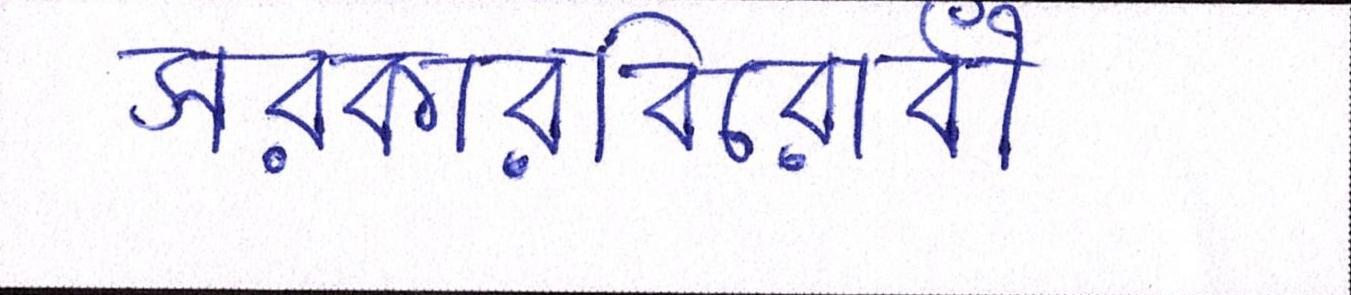 সরকারবিরোধী